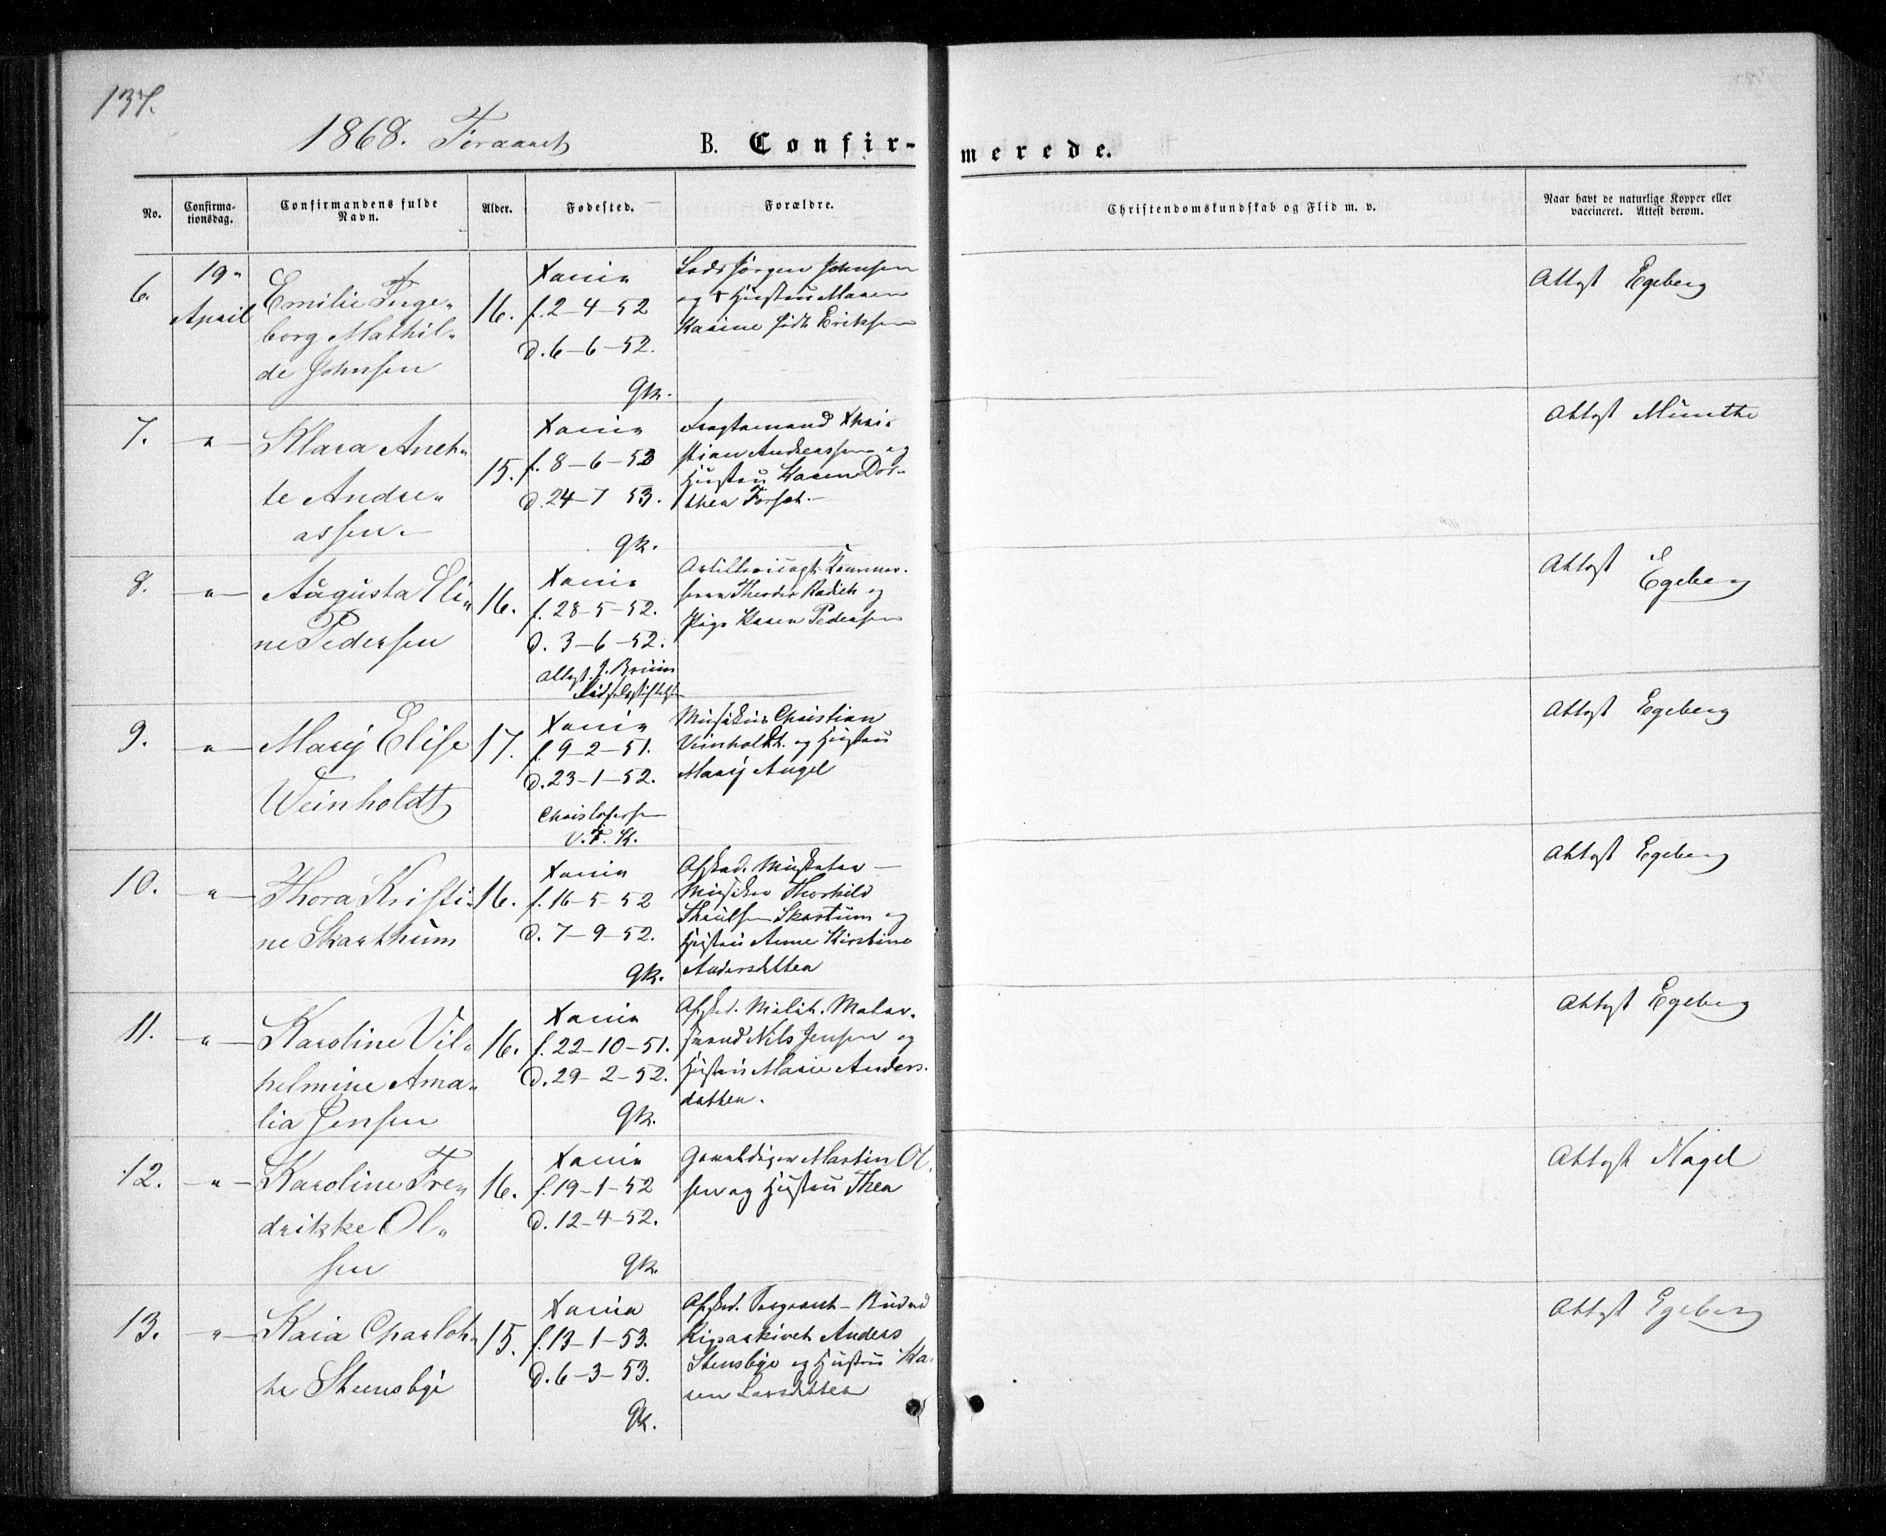 137.
1868. Foraaret
B. Confir-
merede.
No.
Confirma-
tionsdag.
Confirmandens fulde
Navn.
Alder.
Fødested.
Forældre.
Christendomskundskab og Flid m. v.
Naar havt de naturlige Kopper eller
vaccineret. Attest derom.
6.
19"
April
Emilie Inge-
borg Mathil-
de Johnsen
16.
Xania
f. 2-4-52
d. 6-6-52.
gk.
Lods Jørgen Johnsen
og Hustru Maren
Karine født Eriksen
Attest Egeberg
7.
"
Klara Aneth-
te Andre-
assen.
15.
Xania
f. 8-6-53
d. 24-7 53.
gk.
Fragtemand Khri-
stian Andreassen og
Hustru Karen Dor-
thea
Attest Munthe
8.
"
Augusta Eli-
ne Pedersen
16.
Xania
f. 28-5-52.
d. 3-6-52.
Attest. J. Bruun
Fødselsstiftelsen
Theodor Radich og
Pige Karen Pedersen
Attest Egeberg
9.
"
Marij Elise
Weinholdt
17.
Xania
f. 9-2-51.
d. 23-1-52.
Christophersen
V. F. K.
Musikus Christian
Veinholdt. og Hustru
Marij Angel
Attest Egeberg
10.
"
Thora Kristi-
ne Skarthum
16.
Xania
f. 16-5-52
d. 7-9-52.
gk.
Afsked. Musketer -
Musiker Thorkild
Skartum og
Hustru Anne Kirstine
Andersdatter
Attest Egeberg
11.
"
Karoline Vil-
helmine Ama-
lia Jensen
16.
Xania
f. 22-10-51.
d. 29-2-52.
gk.
Afsked. Milit. Maler-
svend Nils Jensen og
Hustru Marie Anders-
datter.
Attest Egeberg
12.
"
Karoline Fre-
drikke Ol-
sen
16.
Xania
f. 19-1-52
d. 12-4-52.
gk.
Gevaldiger Martin Ol-
sen og Hustru Thea
Attest Nagel
13.
"
Kaia Charlot-
te Steensbye
15.
Xania
f. 13-1-53.
d. 6-3-53.
gk.
Afsked. Sergeant - Bud ved
Rigsarkivet Anders
Stensbye og Hustru Ka-
ren Larsdatter
Attest Egeberg